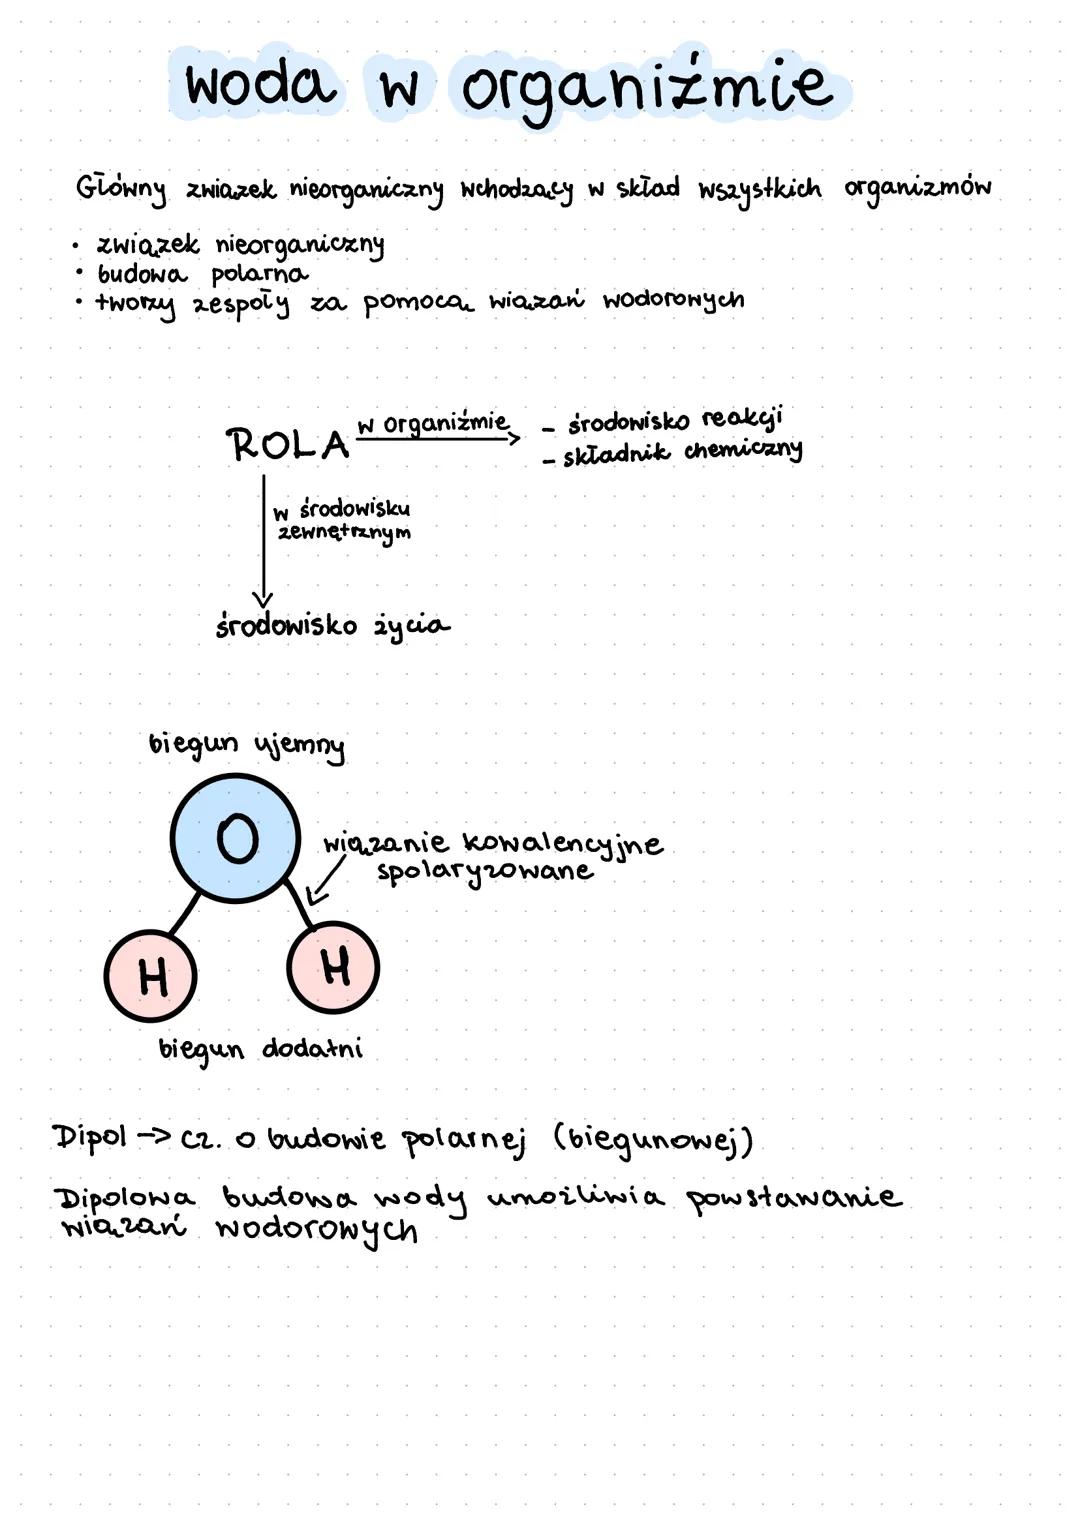 woda w organiźmie
Główny związek nieorganiczny wchodzący w skład wszystkich organizmów
• związek nieorganiczny
• budowa polarna
• tworzy zespoły za pomocą wiązań wodorowych
ROLA w organiźmie - środowisko reakcji
- składnik chemiczny
w środowisku
zewnętrznym
środowisko życia
biegun ujemny
O
wiązanie kowalencyjne
spolaryzowane
H H
biegun dodatni
Dipol -> cz. o budowie polarnej (biegunowej)
Dipolowa budowa wody umożliwia powstawanie
wiązań wodorowych